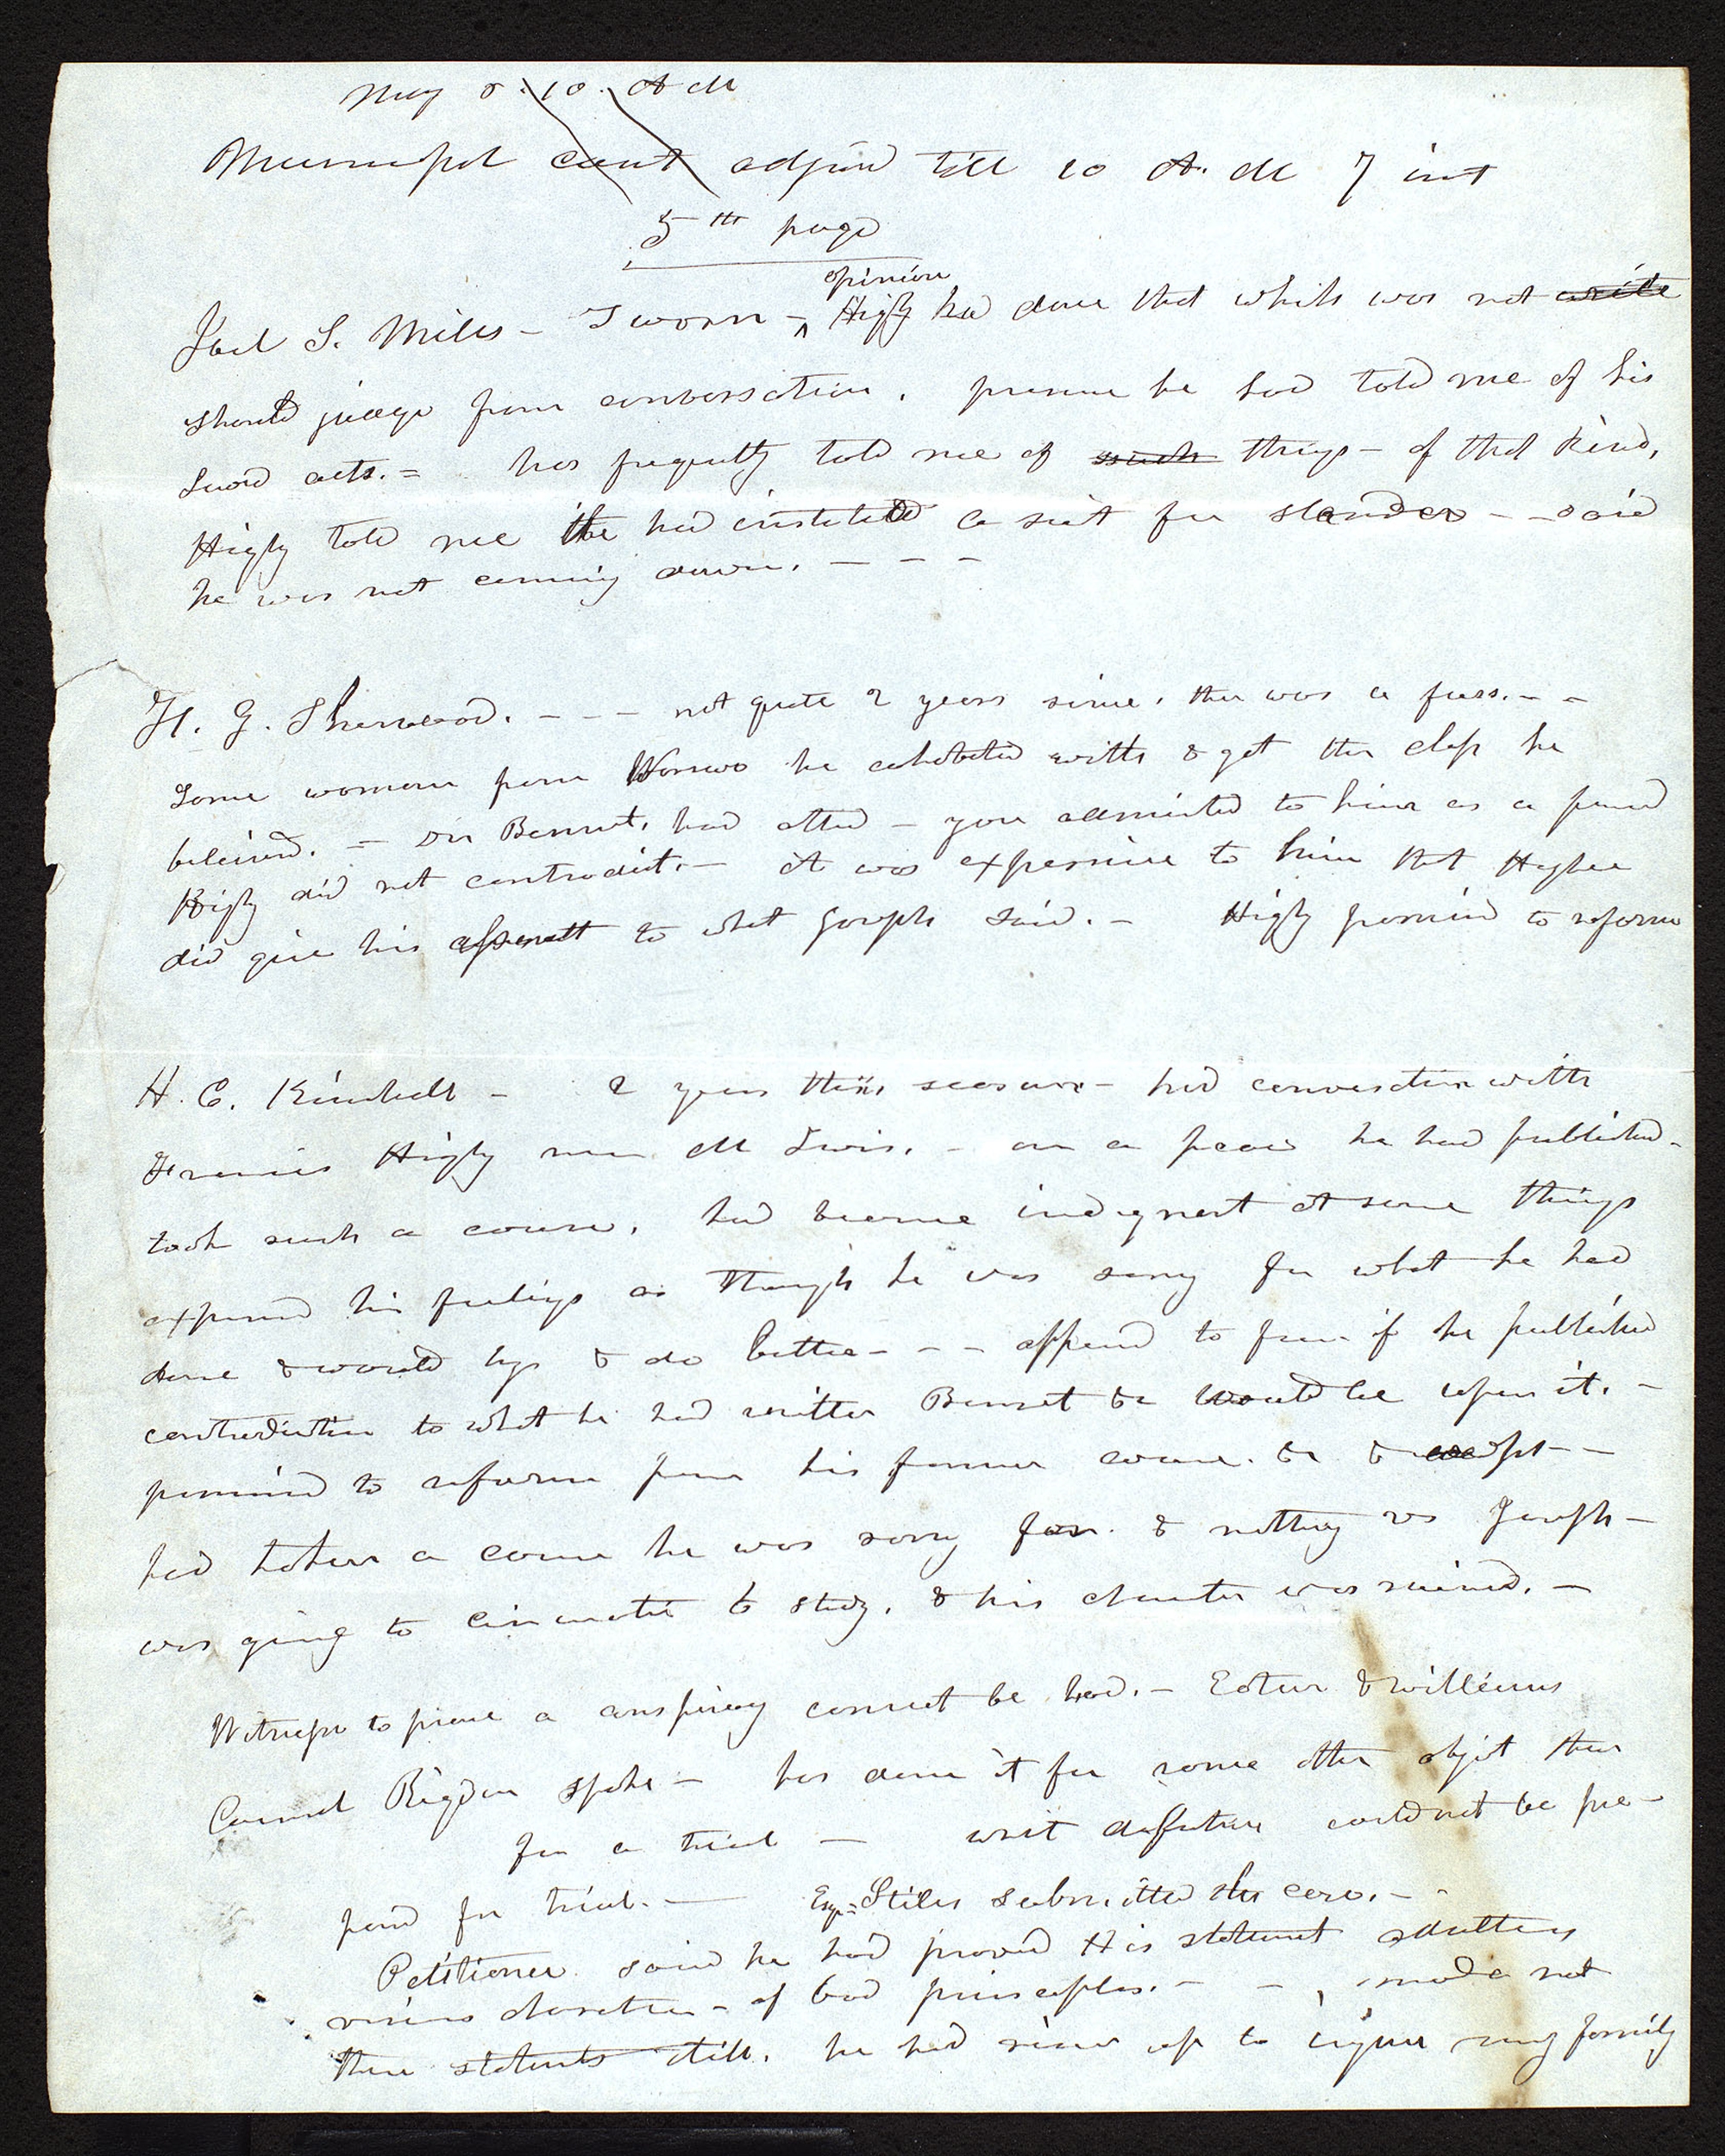 May 8. 10. A M
Municipal court adjnd till 10 A. M 7 inst
5th page
opinion
Joel S. Miles — Sworn — Higby had done that which was not write
should judge from conversation. presume he had told me of his
lewd acts. = has frequently told me of such things — of that kind,
Higby told me he had instituted a suit for slander — said
he was not coming down. — — —
H. G. Sherwood. — — — not quite 2 years since, ther was a fuss. — —
Some woman from Warsaw he cohobited with & got the clap he
beleived. — Dr Bennet, had attnd — you administed to him as a friend
Higby did not contradict. — it was expressive to him that Higbee
did give his assent to what Joseph said. — Higby promisd to reform
H. C. Kimball — 2 years this season — had conversation with
Francis Higby on a peace he had published —
took such a course, had become indignant at some things
expressed his feelings as though he was sorry for what he had
done & would try & do better — — — appeard to fear if he published
contradiction to what he had written Bennet &c would be upon it. —
promised to reform from his former course. &c &
had taken a course he was sorry for. & nothing vs Joseph —
was going to Cincinatti to study. & his charcter was ruined. —
Witnesses to prove a conspiracy cannot be had. — Eaton & Williams
Councel Rigdon spoke — has done it for some other object than
for a trial — writ could not be pre-
pard for trial. — Esqr= Stiles submitted the case. —
Petitioner said he had proved His statement adultery
vicious charcter — of bad principles. — — , made not
these statments till, he had risen up to injure my family